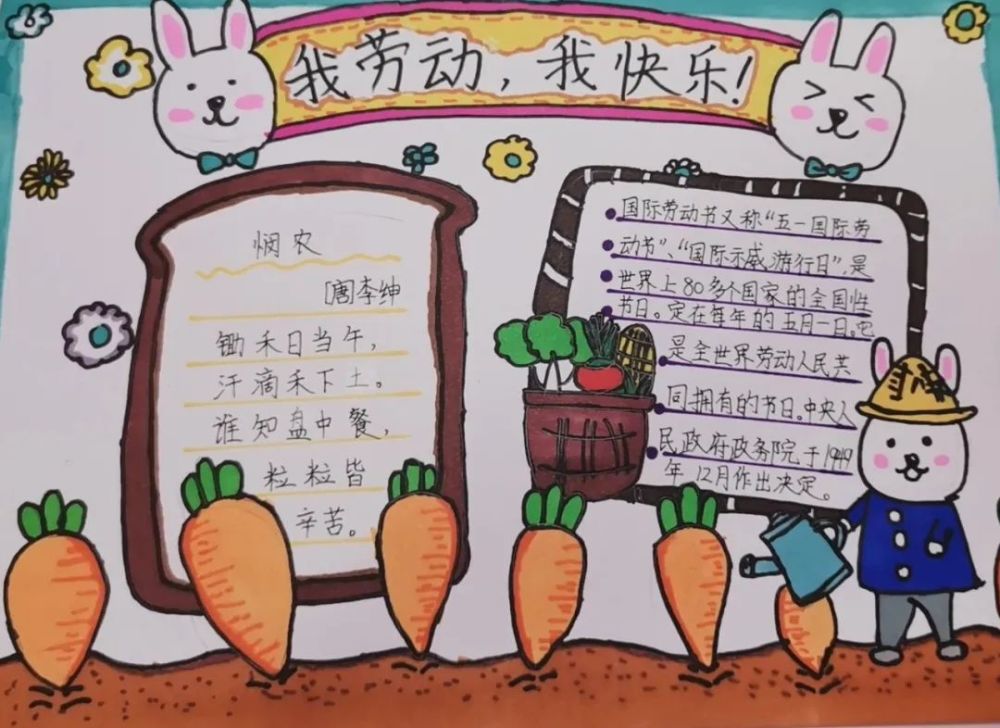 我劳动，我快乐！
悯农
[唐]李绅
锄禾日当午，
汗滴禾下土。
谁知盘中餐，
粒粒皆
辛苦。
国际劳动节又称“五一国际劳
动节”、“国际示威游行日”，是
世界上80多个国家的全国性
节日。定在每年的五月一日。它
是全世界劳动人民共
同拥有的节日。中央人
民政府政务院于1949
年12月作出决定。